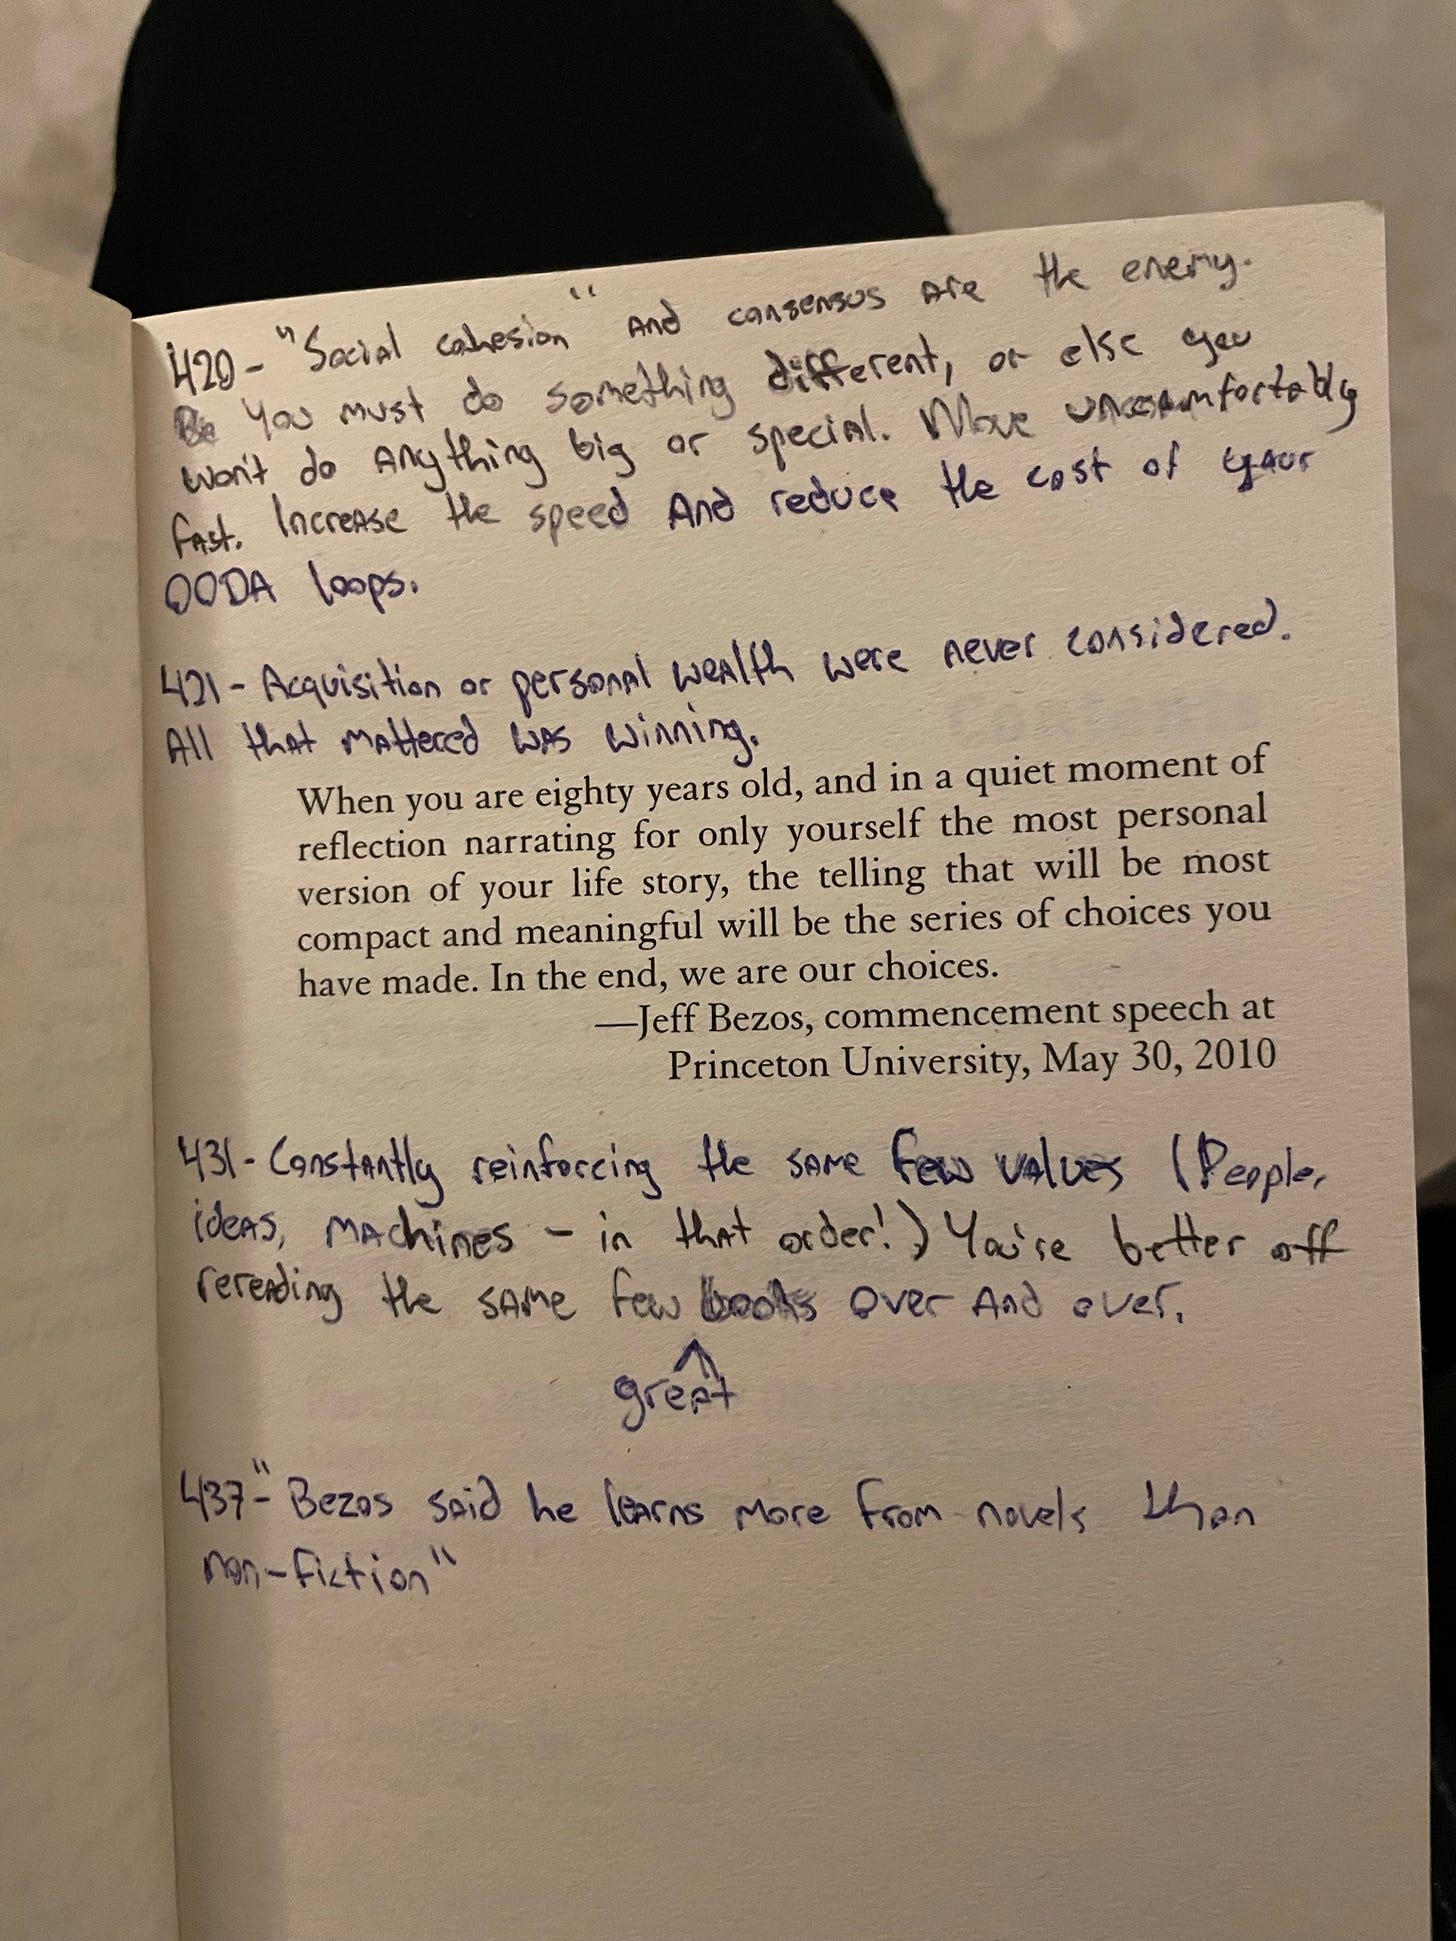 420- "Social cohesion" and consensus are the enemy.
Be You must do something different, or else you
won't do anything big or special. Move uncomfortably
fast. Increase the speed and reduce the cost of your
OODA loops.
421- Acquisition or personal wealth were never considered.
All that mattered was winning.
When you are eighty years old, and in a quiet moment of
reflection narrating for only yourself the most personal
version of your life story, the telling that will be most
compact and meaningful will be the series of choices you
have made. In the end, we are our choices.
—Jeff Bezos, commencement speech at
Princeton University, May 30, 2010
431- Constantly reinforcing the same few values (People,
ideas, machines - in that order!) You're better off
rereading the same few books over and over.
great
437- "Bezos said he learns more from novels than
non-fiction"